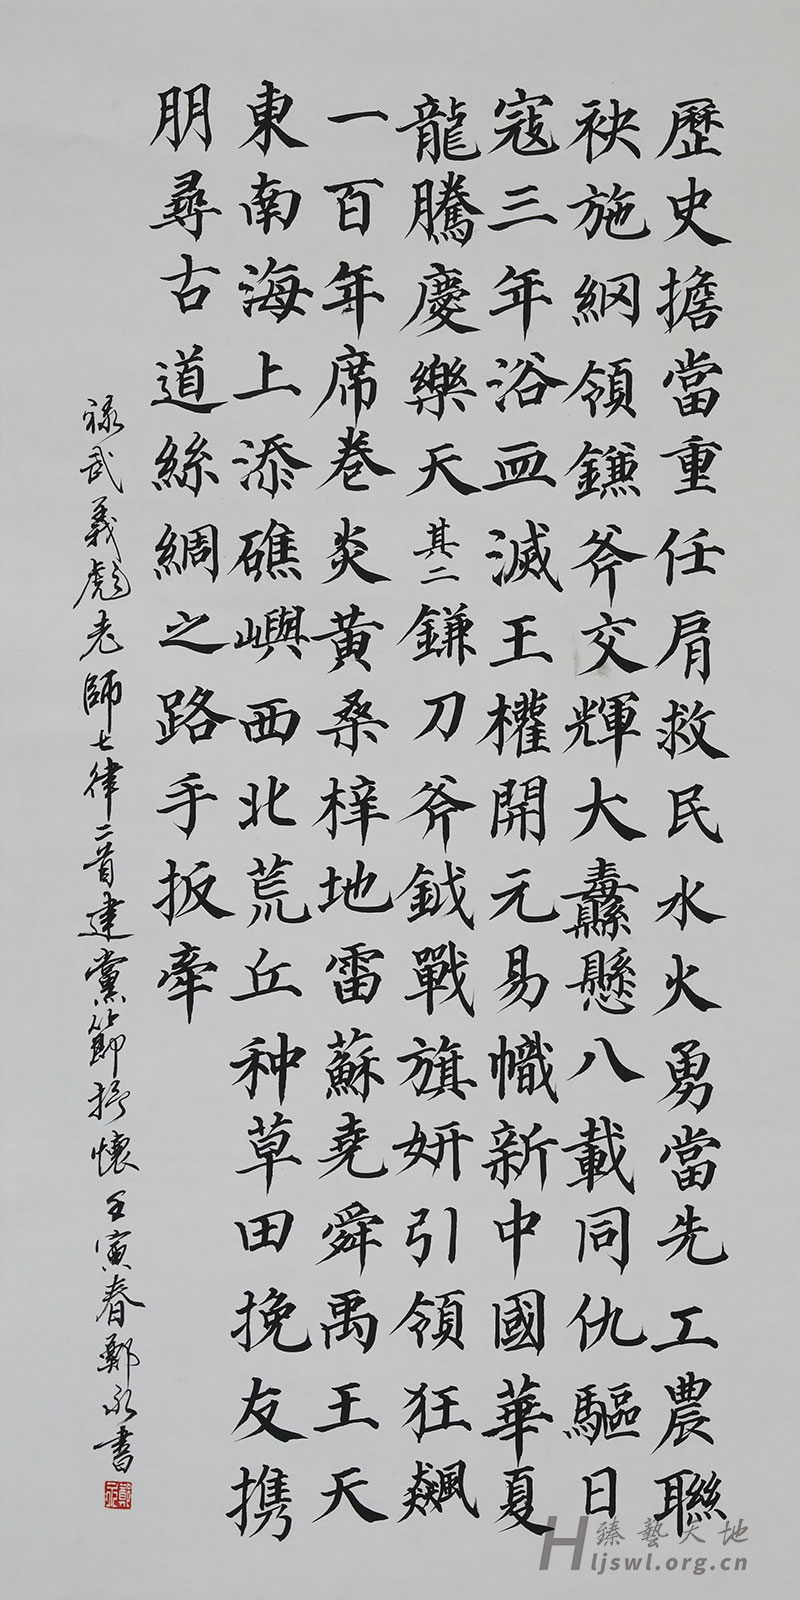 歷史擔當重任肩救民水火勇當先工農聯
袂施綱領鐮斧交輝大纛懸八載同仇驅日
寇三年浴血滅王權開元易幟新中國華夏
龍騰慶樂天其二鐮刀斧鉞戰旗妍引領狂飆
一百年席卷炎黃桑梓地雷蘇堯舜禹王天
東南海上添礁嶼西北荒丘种草田挽友携
朋尋古道絲綢之路手扳牽
祿武義彪老師七律二首建黨節抒懷壬寅春鄭永書
臻藝天地
ljswl.org.cn